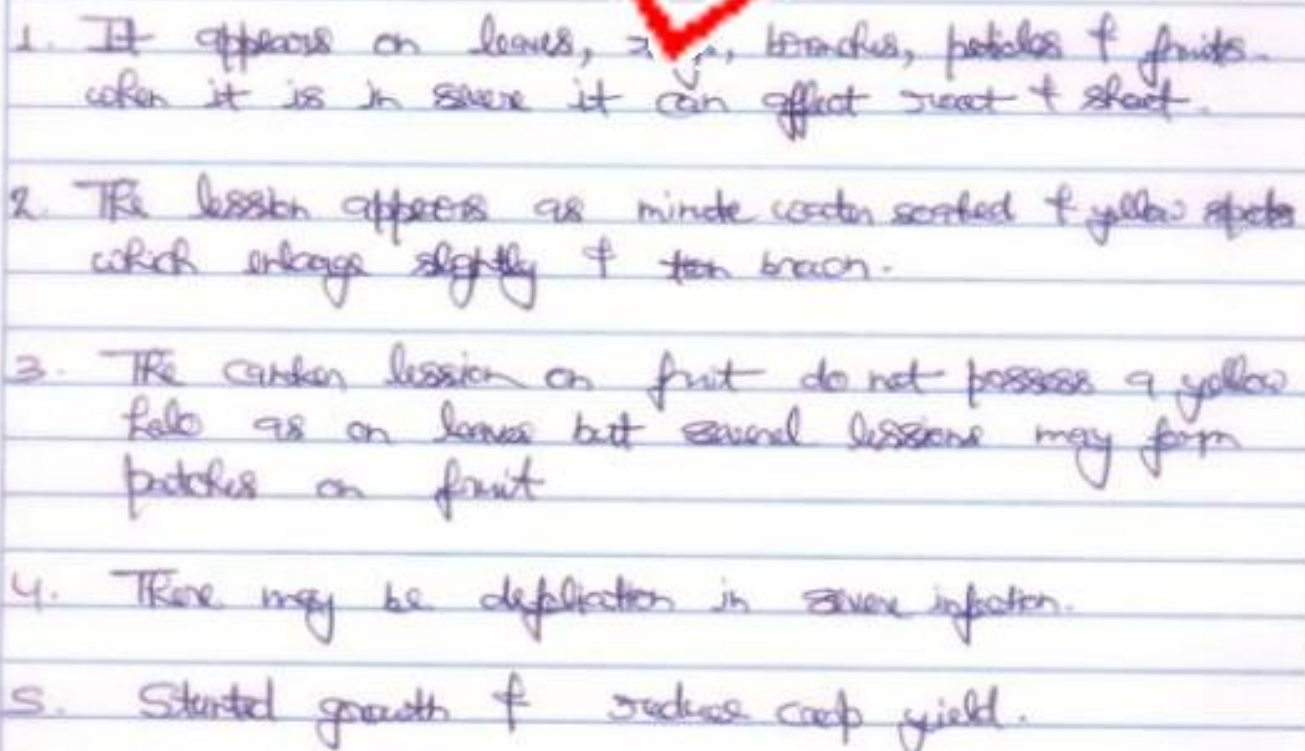 1. It appears on leaves, branches, petioles & fruits.
when it is in severe it can affect root & shoot.
2. The lession appears as minute water soaked & yellow spots
which enlarge slightly & brown.
3. The canker lession on fruit do not possess a yellow
halo as on leaves but several lessions may form
patches on fruit
4. There may be defoliation in severe infection.
5. Stunted growth & reduce crop yield.